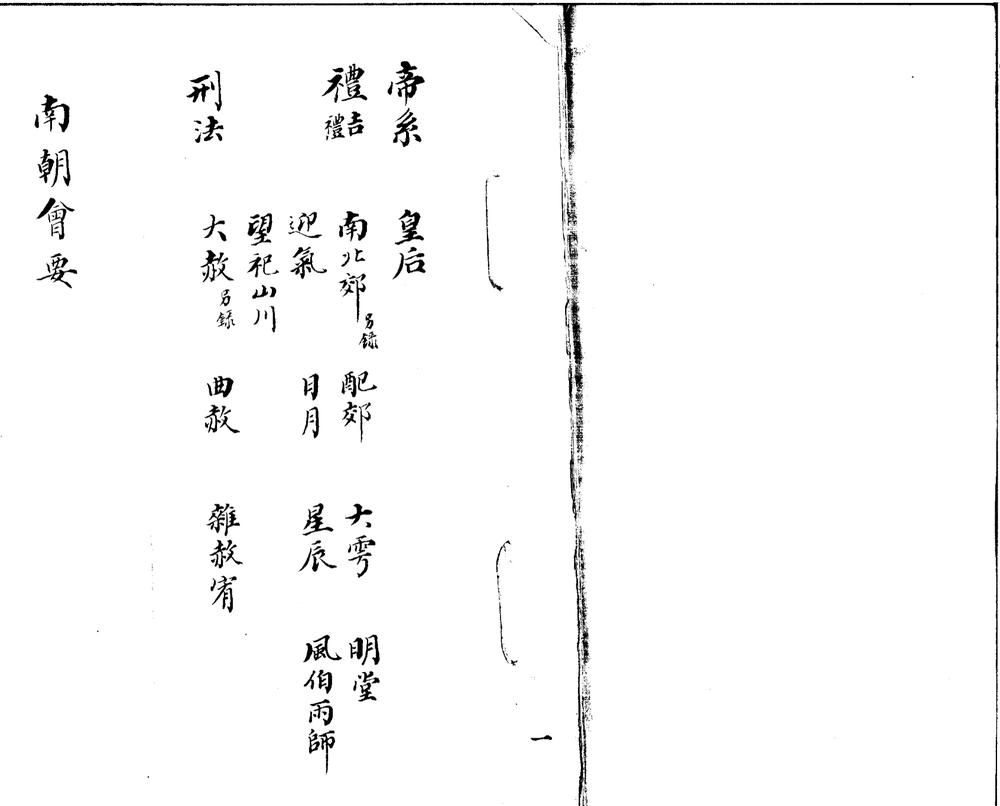 帝系 皇后
禮吉禮 南北郊另錄 配郊 大雩 明堂
迎氣 日月 星辰 風伯雨師
望祀山川
刑法 大赦另錄 曲赦 雜赦宥
南朝會要
一